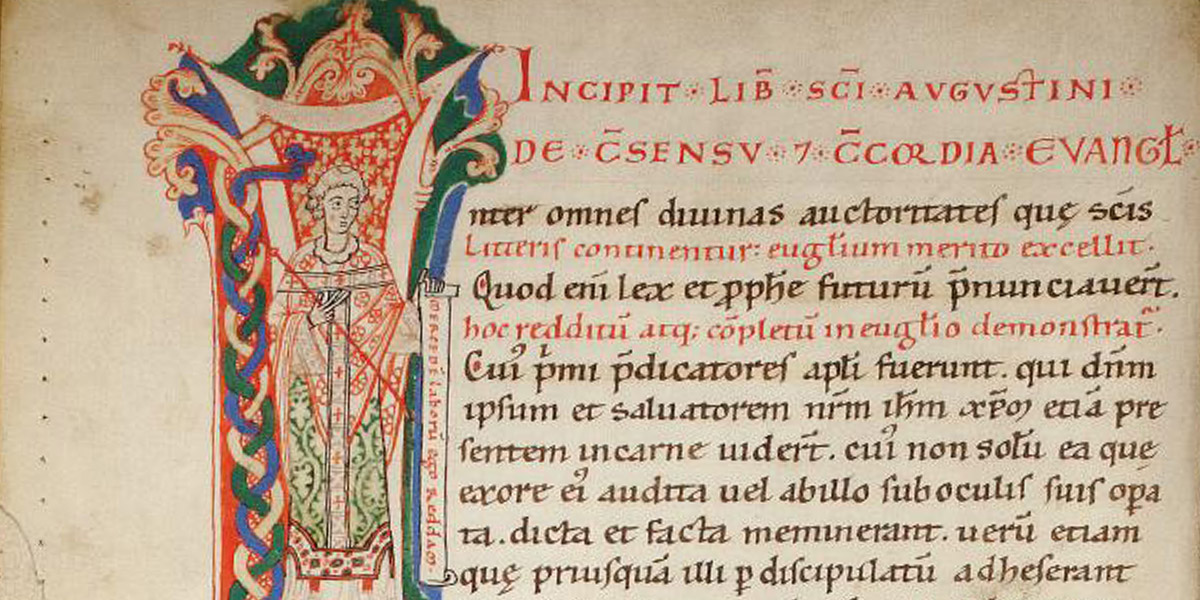 INCIPIT · LIB̄ · SC̄I · AVGVSTINI
DE · C̄SENSV · 7 · C̄CORDIA · EVANGŁ
nter omnes diuinas auctoritates quę sc̄is
Litteris continentur: eugl̄ium merito excellit.
Quod eni̅ lex et ꝓphe futurū p̄nunciauer̄t.
hoc redditū atq; cōpletū in eugl̄io demonstrat̄.
Cuiꝰ pͥmi p̄dicatores apl̄i fuerunt. qui dn̄m
ipsum et saluatorem nr̄m ih̄m xp̄m etiā pre
sentem in carne uider̄t. cuiꝰ non solū ea quę
ex ore eiꝰ audita uel ab illo sub oculis suis oꝑa
ta. dicta et facta meminerant. uerū etiam
quę priusquā illi ꝑ discipulatū adheserant
laborū ego reddam.